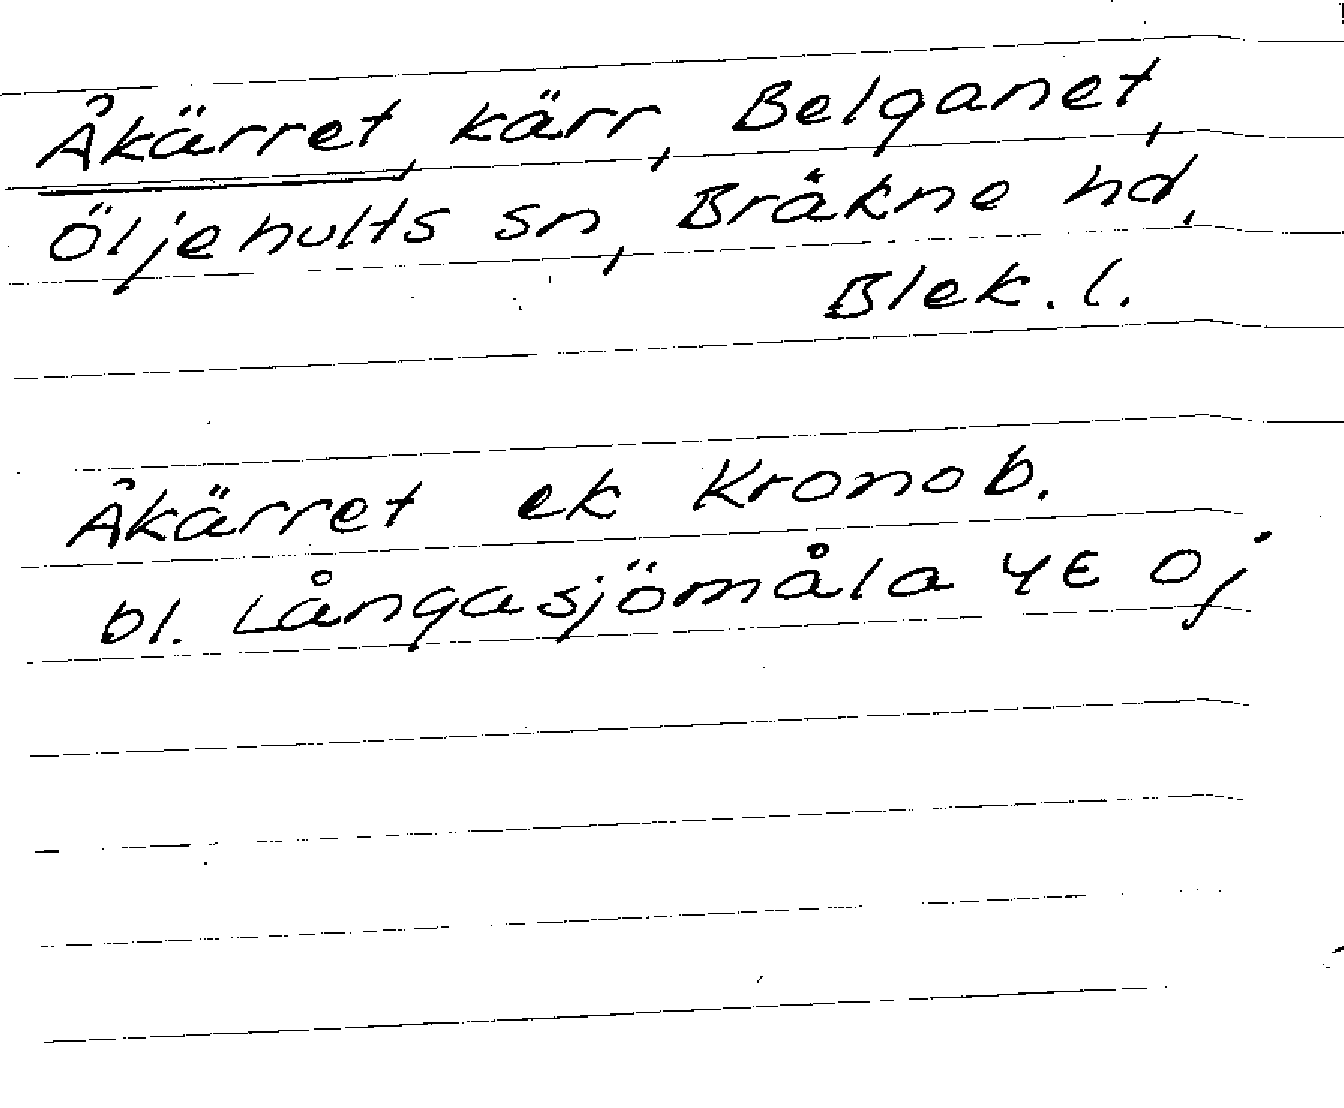 Åkärret, kärr, Belganet,
Öljehults sn, Bräkne hd,
Blek. l.
Åkärret ek Kronob.
bl. Långasjömåla 4E 0j